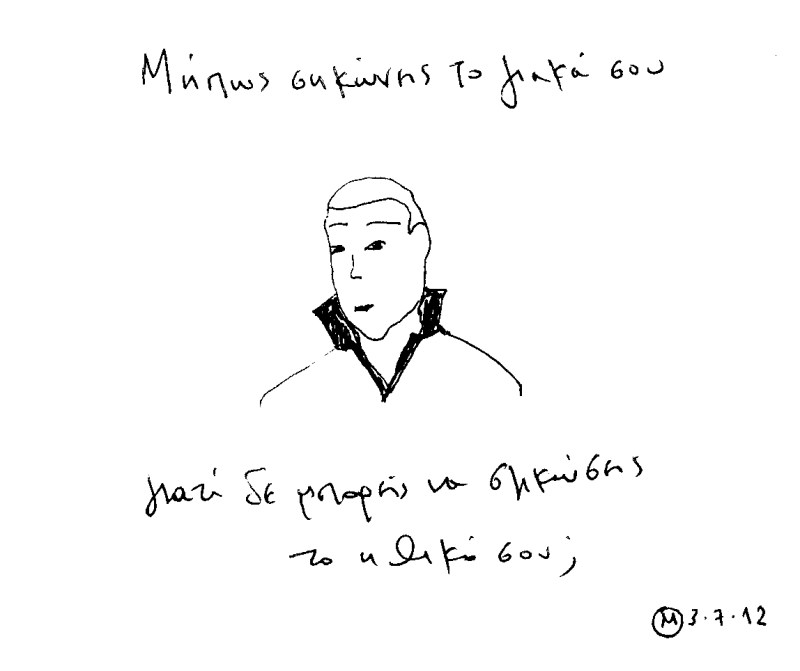 Μήπως σηκώνεις το γιακά σου
γιατί δε μπορείς να σηκώσεις
το ηθικό σου;
Μ 3.7.12